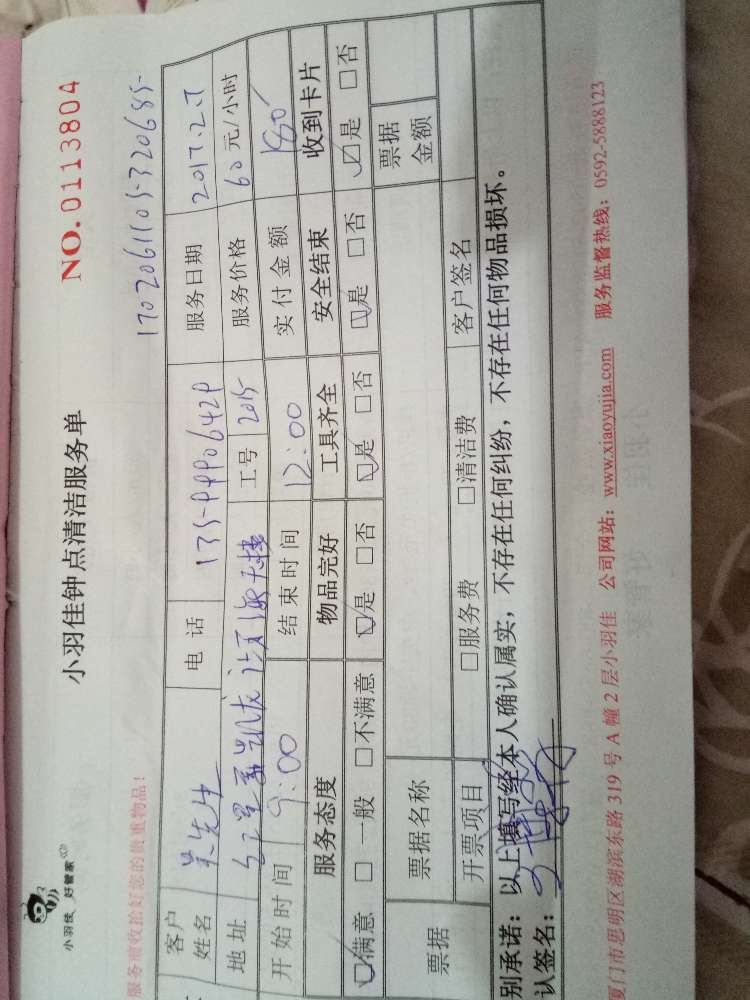 小羽佳 好管家
小羽佳钟点清洁服务单
NO.0113804
服务前收拾好您的贵重物品！
1702061105-320685-
客户姓名 吴先生 电话 服务日期 2017.2.7
地址 工号 2015 服务价格 60元/小时
开始时间 9:00 结束时间 12:00 实付金额 180
服务态度 物品完好 工具齐全 安全结束 收到卡片
☑满意 □一般 □不满意 ☑是 □否 ☑是 □否 ☑是 □否 ☑是 □否
票据 票据名称 票据金额
开票项目 □服务费 □清洁费 客户签名
别承诺：以上填写经本人确认属实，不存在任何纠纷，不存在任何物品损坏。
认签名：
厦门市思明区湖滨东路319号A幢2层小羽佳 公司网站：www.xiaoyujia.com 服务监督热线：0592-5888123